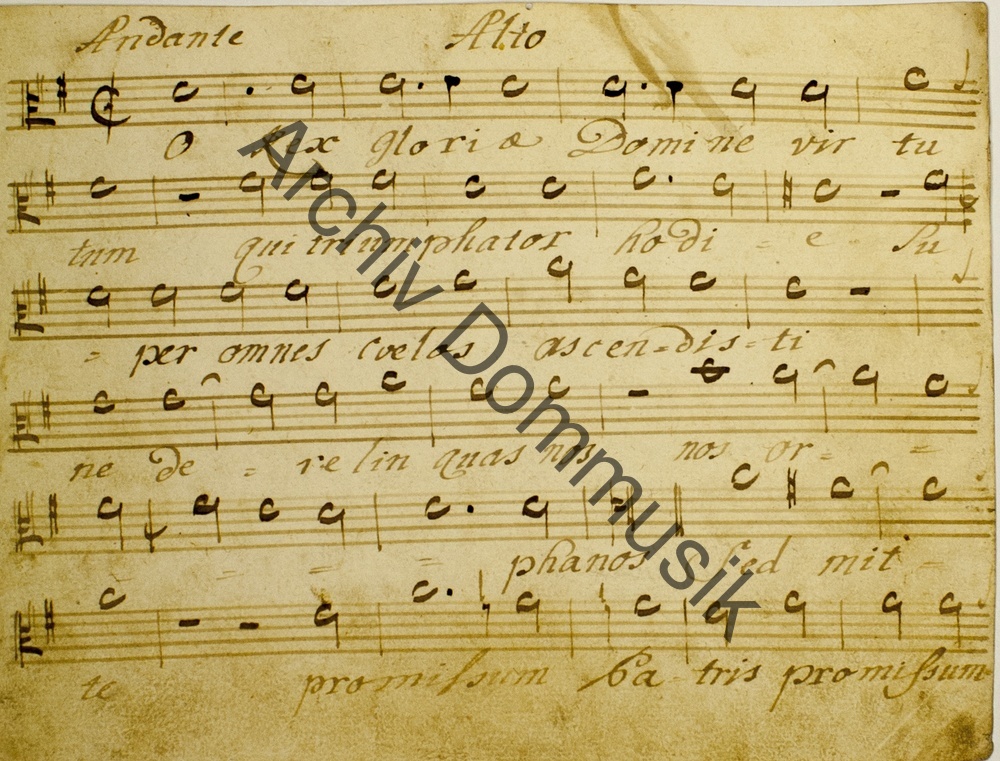 Andante Alto
O Rex gloriæ Domine vir tu
tum qui triumphator hodi = e Su
= per omnes cvelos ascen=dis=ti
ne de = relin quas nos nos or= =
= = = = phanos Sed mit =
te promissum Pa tris promissum
Archiv Dommusik